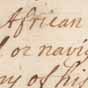 African
or navig
ny of his